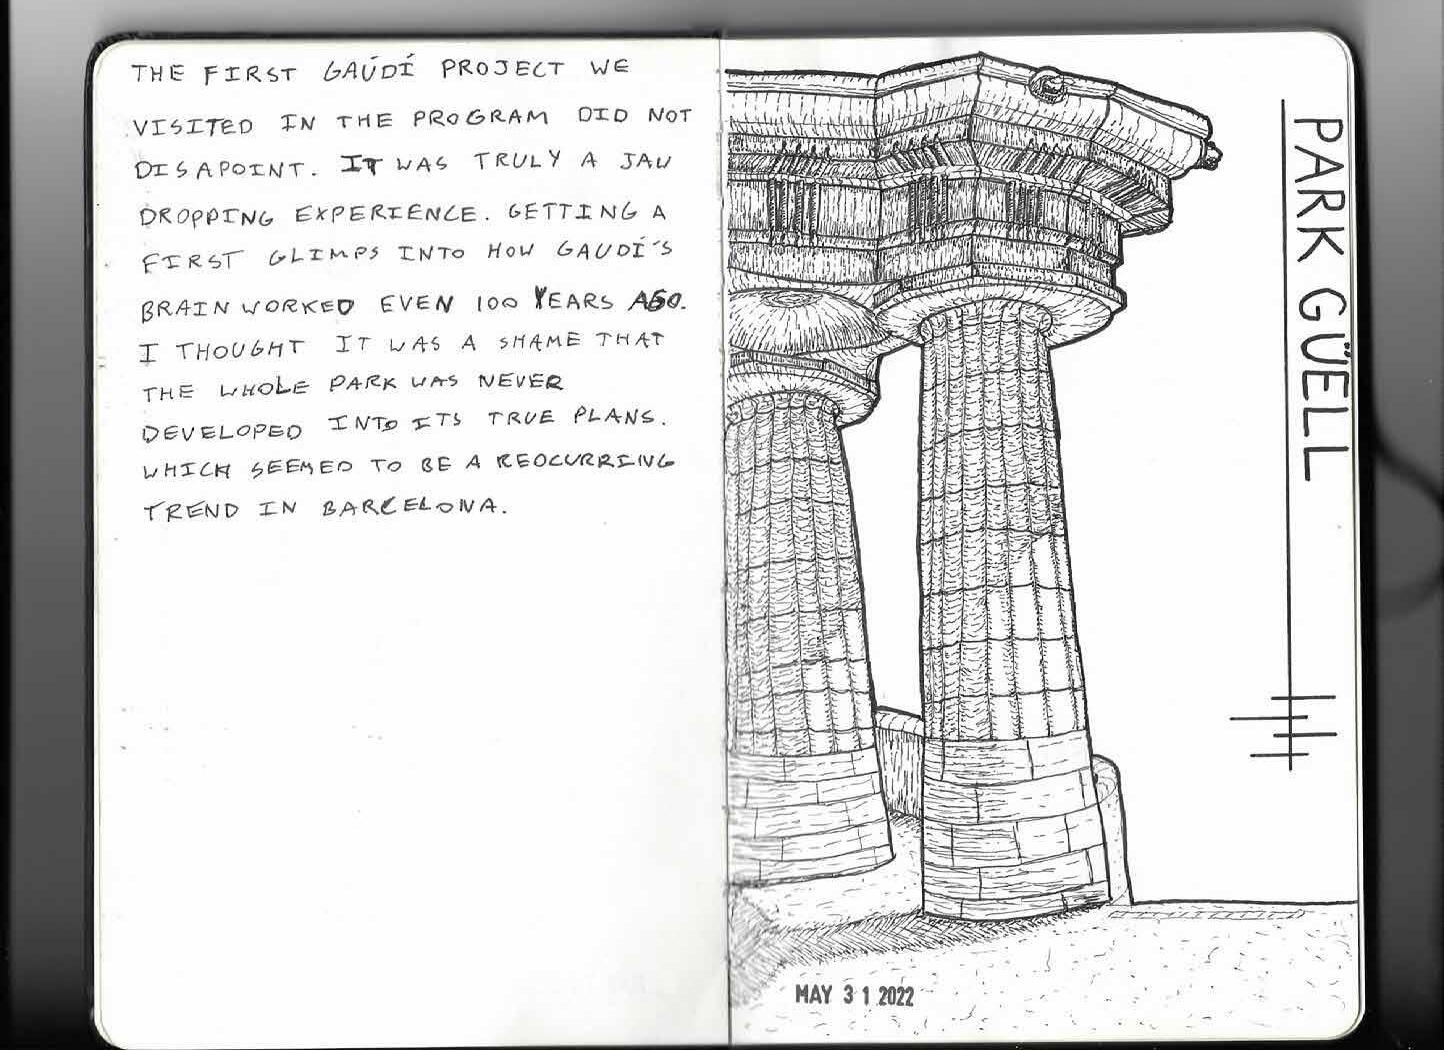 THE FIRST GAÚDÍ PROJECT WE
VISITED IN THE PROGRAM DID NOT
DISAPOINT. IT WAS TRULY A JAW
DROPPING EXPERIENCE. GETTING A
FIRST GLIMPS INTO HOW GAUDÍ'S
BRAIN WORKED EVEN 100 YEARS AGO.
I THOUGHT IT WAS A SHAME THAT
THE WHOLE PARK WAS NEVER
DEVELOPED INTO ITS TRUE PLANS.
WHICH SEEMED TO BE A REOCURRING
TREND IN BARCELONA.
PARK GÜELL
MAY 31 2022